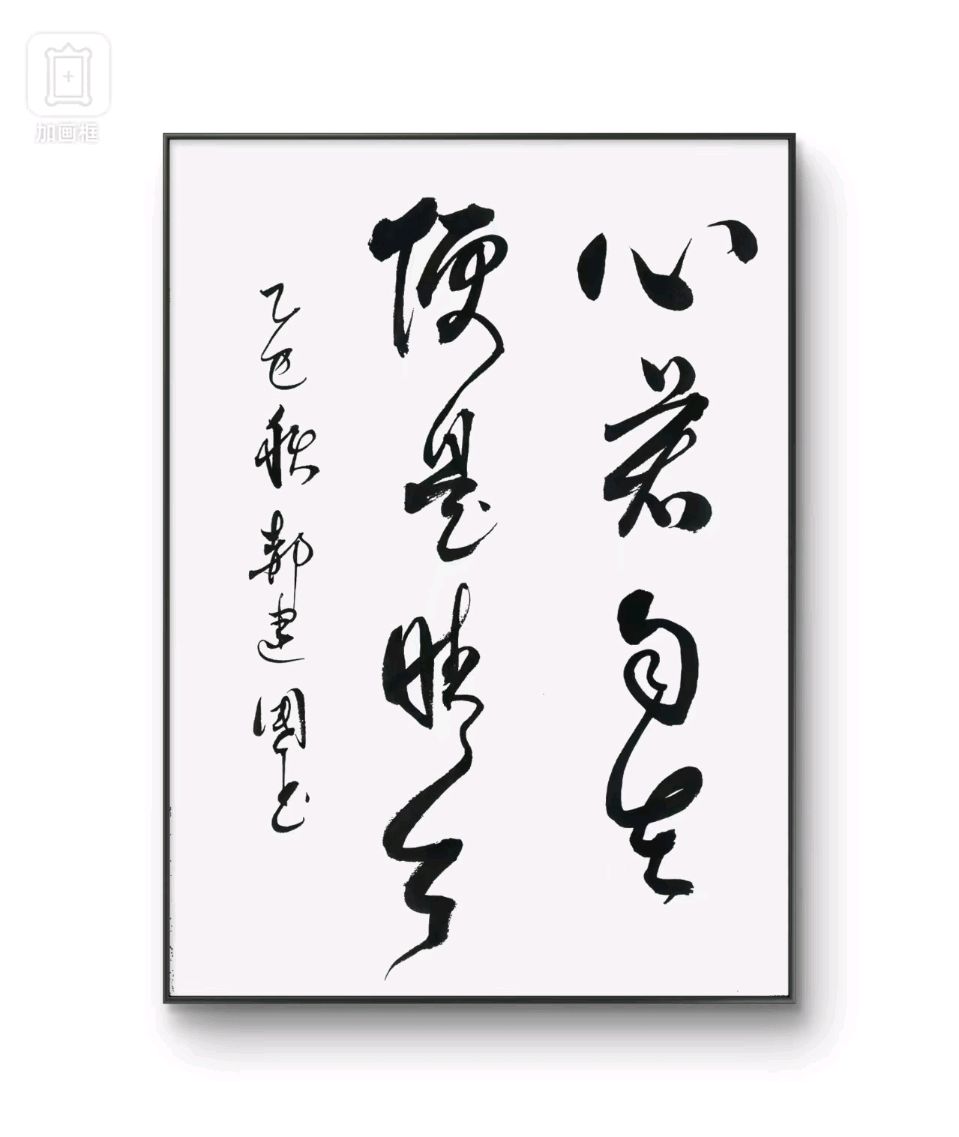 加画框
心若自在
便是晴天
乙巳秋郝建国书